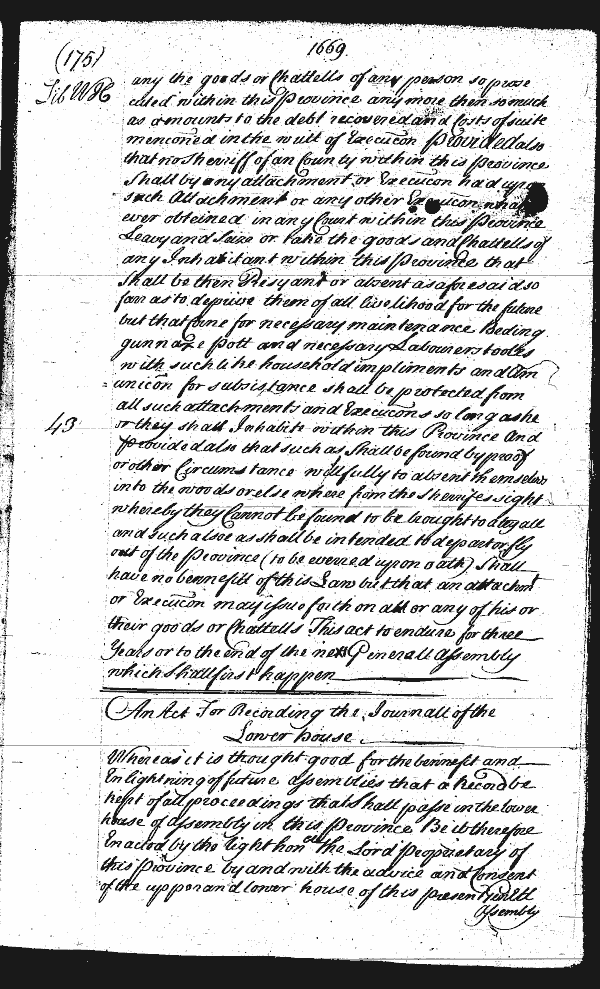 1669.
(175)
Lib WH
any the goods or Chattells of any person so prose
cuted within this Province any more then so much
as amounts to the debt recovered and Costs of suite
menconed in the writt of Execucon Provided also
that no Sherriff of an County within this Province
Shall by any attachment or Execucon had upon
such Attachment or any other Execucon what
ever obteined in any Court within this Province
Leavy and Seize or take the goods and Chattells of
any Inhabitant within this Province that
Shall be then Resyant or absent as aforesaid so
farr as to deprive them of all livelihood for the future
but that Corne for necessary maintenance Beding
gunn axe Pott and necessary Labourers tooles
with such like household impliments and Am
unicon for subsistance shall be protected from
all such attachments and Execucons so long as he
43
or they shall Inhabite within this Province And
Provided also that such as Shall be found by proof
or other Circumstance willfully to absent themselves
into the woods or else where from the Sherrifes sight
whereby they Cannot be found to be brought to
and such alsoe as shall be intended to depart or fly
out of the Province (to be everred upon oath) Shall
have no bennefitt of this Law but that an attachmt
or Execucon may issue forth on all or any of his or
their goods or Chattells This act to endure for three
Years or to the end of the next Generall Assembly
which Shall first happen
An Act For Recording the Journall of the
Lower house
Whereas it is thought good for the bennefit and
Enlightning of future Assemblies that a Record be
kept of all proceedings that Shall passe in the lower
house of Assembly in this Province Be it therefore
Enacted by the Right honoble the Lord Proprietary of
this Province by and with the advice and Consent
of the upper and lower house of this present Genll
Assembly